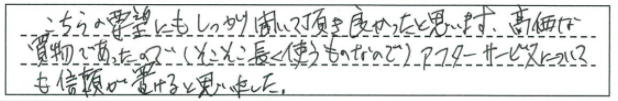 こちらの要望にもしっかり聞いて頂き良かったと思います。高価な
買物であったので（そこそこ長く使うものなので）アフターサービスについて
も信頼が置けると思いました。